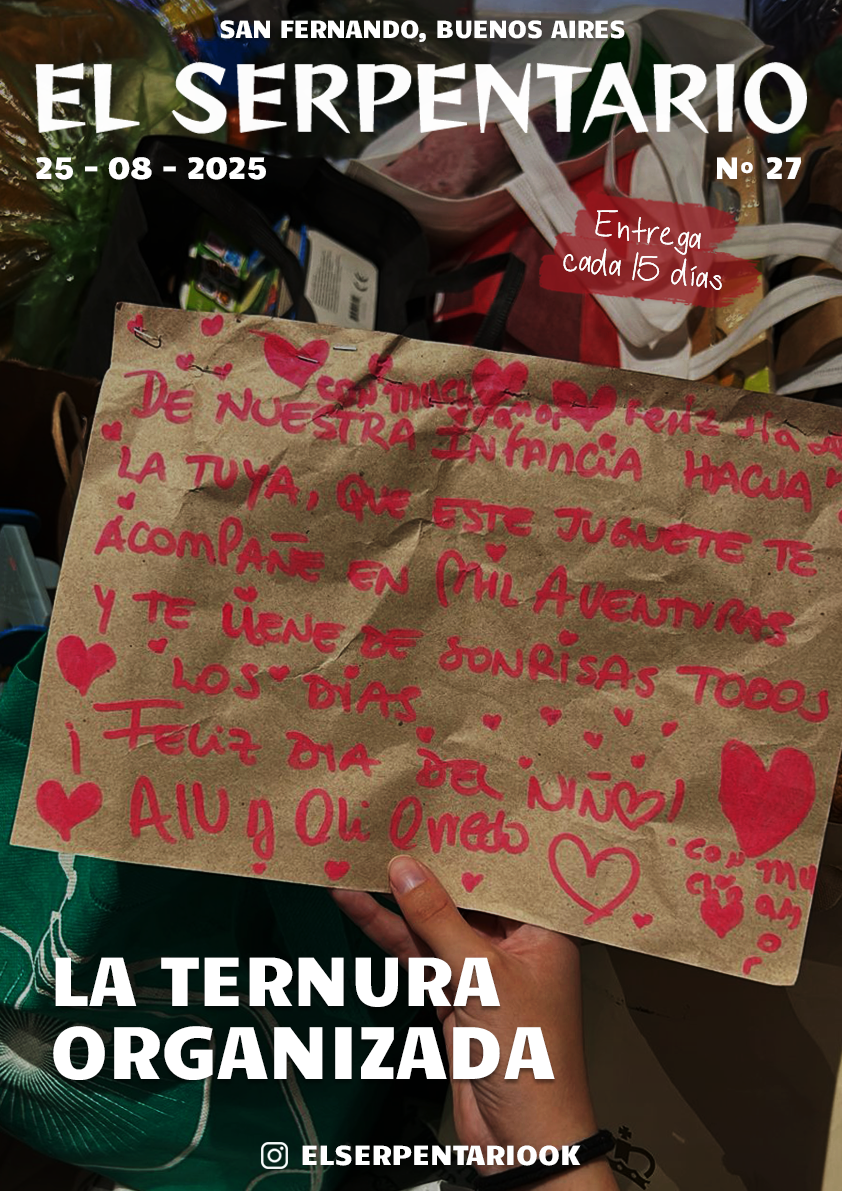 SAN FERNANDO, BUENOS AIRES
EL SERPENTARIO
25 - 08 - 2025
Nº 27
Entrega
cada 15 días
con mucho amor Feliz día
DE NUESTRA INFANCIA HACIA
LA TUYA, QUE ESTE JUGUETE TE
ACOMPAÑE EN MIL AVENTURAS
Y TE LLENE DE SONRISAS TODOS
LOS DÍAS
¡FELIZ DIA DEL NIÑO!
AIU y Oli Oviedo
con mu
amor
LA TERNURA
ORGANIZADA
ELSERPENTARIOOK